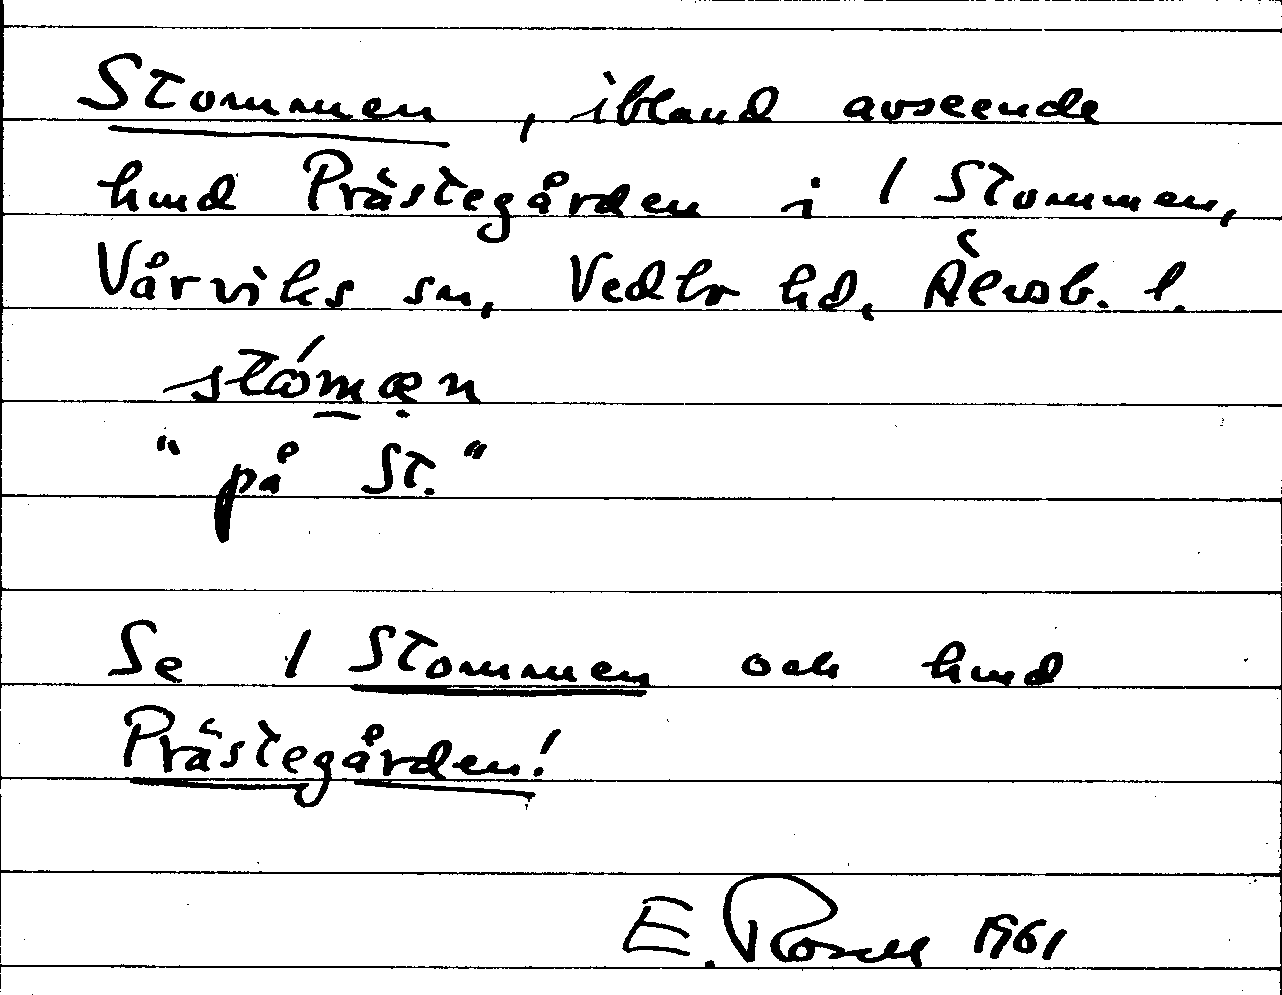 Stommen, ibland avseende
hmd Prästegården i 1 Stommen,
Vårviks sn, Vedbo hd, Älvsb. l.
stómæn
"på St."
Se 1 Stommen och hmd
Prästegården!
E. 1961